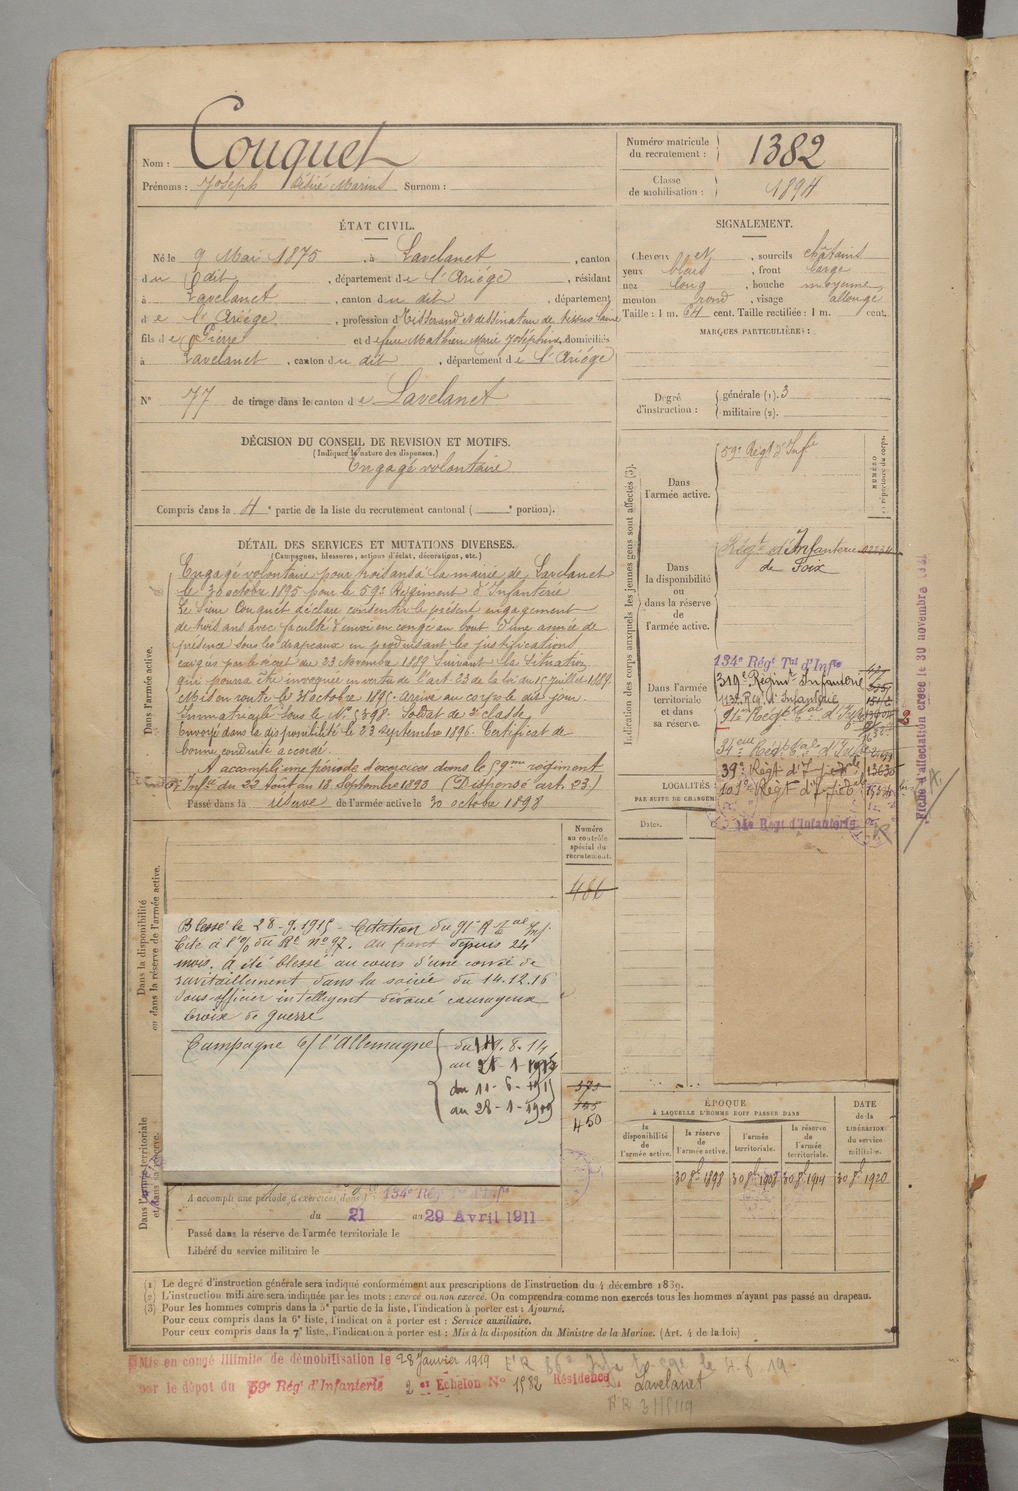 Nom : Couquet
Prénoms : Joseph Désiré Marius Surnom :
Numéro matricule du recrutement : 1382
Classe de mobilisation : 1894
ÉTAT CIVIL.
Né le 9 Mai 1875, à Lavelanet, canton
du dit, département de l'Ariége, résidant
à Lavelanet, canton du dit, département
de l'Ariége, profession de Tisserand et dessinateur de tissus laine
fils de Pierre et de feue Mathieu Marie Joséphine, domiciliés
à Lavelanet, canton du dit, département de l'Ariége
N° 77 de tirage dans le canton de Lavelanet
SIGNALEMENT.
Cheveux et, sourcils châtains
yeux bleus, front large
nez long, bouche moyenne
menton rond, visage allongé
Taille : 1 m. 64 cent. Taille rectifiée : 1 m. cent.
MARQUES PARTICULIÈRES :
Degré d'instruction : générale (1). 3
militaire (2).
DÉCISION DU CONSEIL DE REVISION ET MOTIFS.
(Indiquer la nature des dispenses.)
Engagé volontaire
Compris dans la 4e partie de la liste du recrutement cantonal ( e portion).
DÉTAIL DES SERVICES ET MUTATIONS DIVERSES.
(Campagnes, blessures, actions d'éclat, décorations, etc.)
Dans l'armée active.
Engagé volontaire pour trois ans à la mairie de Lavelanet
le 30 octobre 1895 pour le 59e Régiment d'Infanterie
Le Sieur Couquet déclare consentir le présent engagement
de trois ans avec faculté d'envoi en congé au bout d'une année de
présence sous les drapeaux en produisant les justifications
exigées par le décret du 23 Novembre 1889 suivant la situation
qui pourra être invoquée en vertu de l'art 23 de la loi du 15 juillet 1889
Mis en route le 31 octobre 1895. Arrivé au corps le dit jour
Immatriculé sous le N° 5398. Soldat de 2e classe
Envoyé dans la disponibilité le 23 septembre 1896. Certificat de
bonne conduite accordé.
A accompli une période d'exercices dans le 59me régiment
d'Infie du 22 août au 18 Septembre 1898 (Dispensé art. 23.)
Passé dans la réserve de l'armée active le 30 octobre 1898
Indication des corps auxquels les jeunes gens sont affectés (3).
NUMÉRO au répertoire du corps.
Dans l'armée active.
59e Régt d'Infie
Dans la disponibilité ou dans la réserve de l'armée active.
Régt d'Infanterie
de Foix
Dans l'armée territoriale et dans sa réserve.
134e Régt Tal d'Infie
319e Régimt Infanterie
113e Rég. d'Infanterie
91e Régt tal d'Infie
39e Régt d'Infie 13630
103e Régt d'Infie
14e Régt d'Infanterie
Fiche d'affectation créée le 30 novembre
LOCALITÉS
PAR SUITE DE CHANGEM
Dates.
Numéro au contrôle spécial du recrutement.
466
Dans la disponibilité ou dans la réserve de l'armée active.
Blessé le 28-9-1915 - Citation du 91e R tal Inf
Cité à l'% du Rt n° 97. au front depuis 24
mois. A été blessé au cours d'une corvée de
ravitaillement dans la soirée du 14.12.16
Sous-officier intelligent dévoué courageux
Croix de guerre
Campagne c/ l'Allemagne
du 14.8.14
au 21-1-1915
du 11-6-1915
au 28-1-1919
450
Dans l'armée territoriale et dans sa réserve.
A accompli une période d'exercices dans le 134e Régt Tal d'Infie
du 21 au 29 Avril 1911
Passé dans la réserve de l'armée territoriale le
Libéré du service militaire le
ÉPOQUE À LAQUELLE L'HOMME DOIT PASSER DANS
la disponibilité de l'armée active.
la réserve de l'armée active.
l'armée territoriale.
la réserve de l'armée territoriale.
DATE de la LIBÉRATION du service militaire.
30 8bre 1898
30 8bre 1908
30 8bre 1914
30 8bre 1920
(1) Le degré d'instruction générale sera indiqué conformément aux prescriptions de l'instruction du 4 décembre 1889.
(2) L'instruction militaire sera indiquée par les mots : exercé ou non exercé. On comprendra comme non exercés tous les hommes n'ayant pas passé au drapeau.
(3) Pour les hommes compris dans la 5e partie de la liste, l'indication à porter est : Ajourné.
Pour ceux compris dans la 6e liste, l'indication à porter est : Service auxiliaire.
Pour ceux compris dans la 7e liste, l'indication à porter est : Mis à la disposition du Ministre de la Marine. (Art. 4 de la loi.)
Mis en congé illimité de démobilisation le 28 Janvier 1919
par le dépôt du 59e Régt d'Infanterie 2e Echelon N° 1582 Résidence Lavelanet